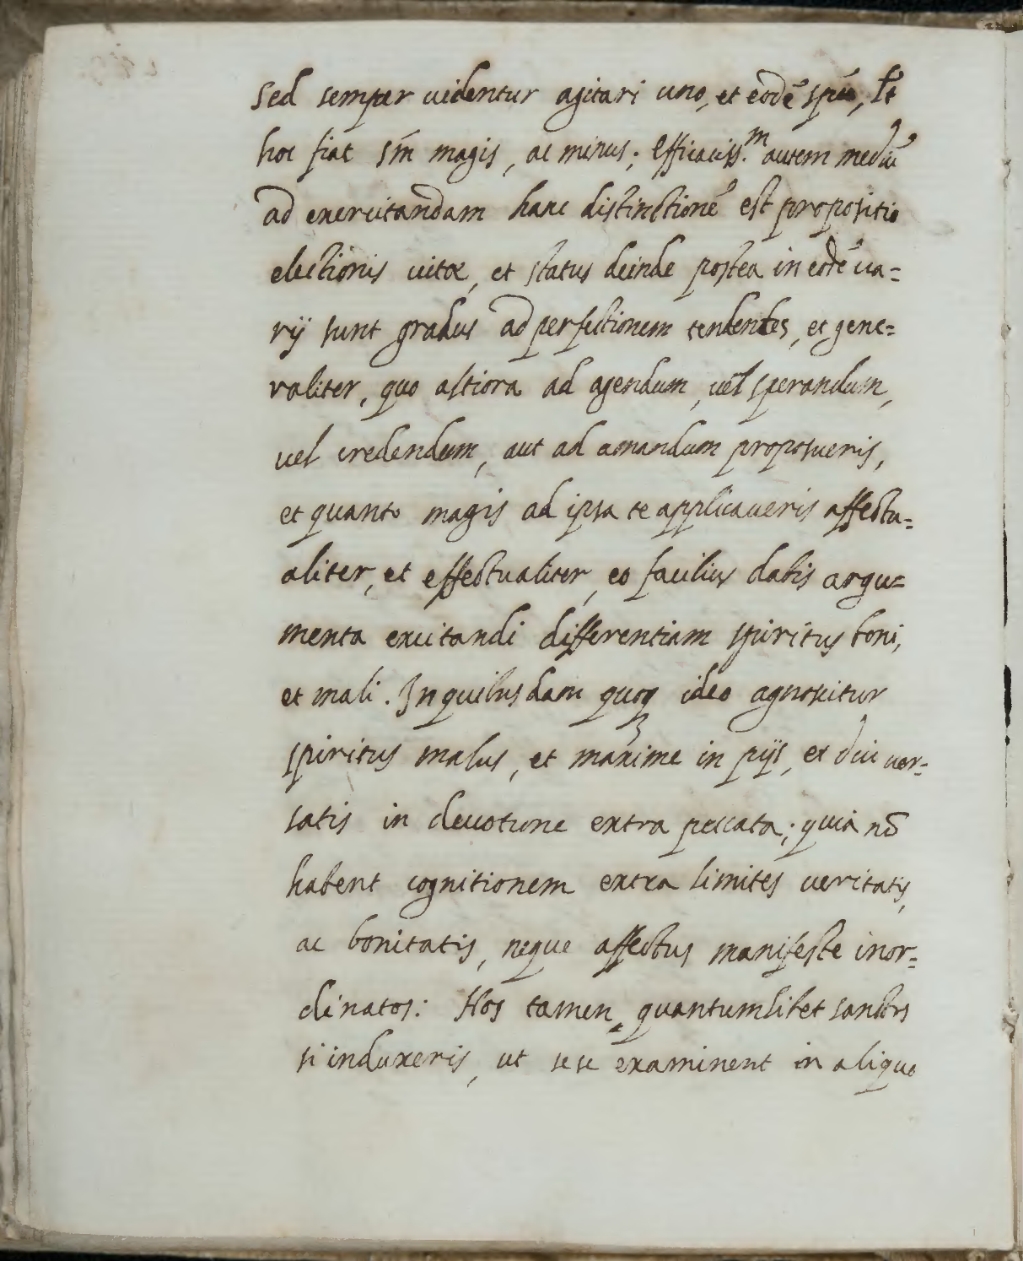 sed semper uidentur agitari uno, et eodē spũ, lꝫ
hoc fiat sm̃ magis, ac minus; efficaciss.m autem mediũ
ad exercitandam hanc distinctionẽ est propositio
electionis uitæ, et status deinde postea in eodẽ ua=
rij sunt gradus ad perfectionem tendentes, et gene=
raliter, quo altiora ad agendum, uel sperandum,
uel credendum, aut ad amandum proposueris,
et quanto magis ad ipsa te applicaueris affectu=
aliter, et effectualiter, eo facilius dabis argu=
menta excitandi differentiam spiritus boni,
et mali. In quibusdam quoqꝫ ideo agnoscitur
spiritus malus, et maxime in pijs, et diu uer=
satis in deuotione extra peccata; quia nõ
habent cognitionem extra limites ueritatis,
ac bonitatis, neque affectus manifeste inor=
dinatos: Hos tamen, quantumlibet sanctos
si induxeris, ut sese examinent in aliquo